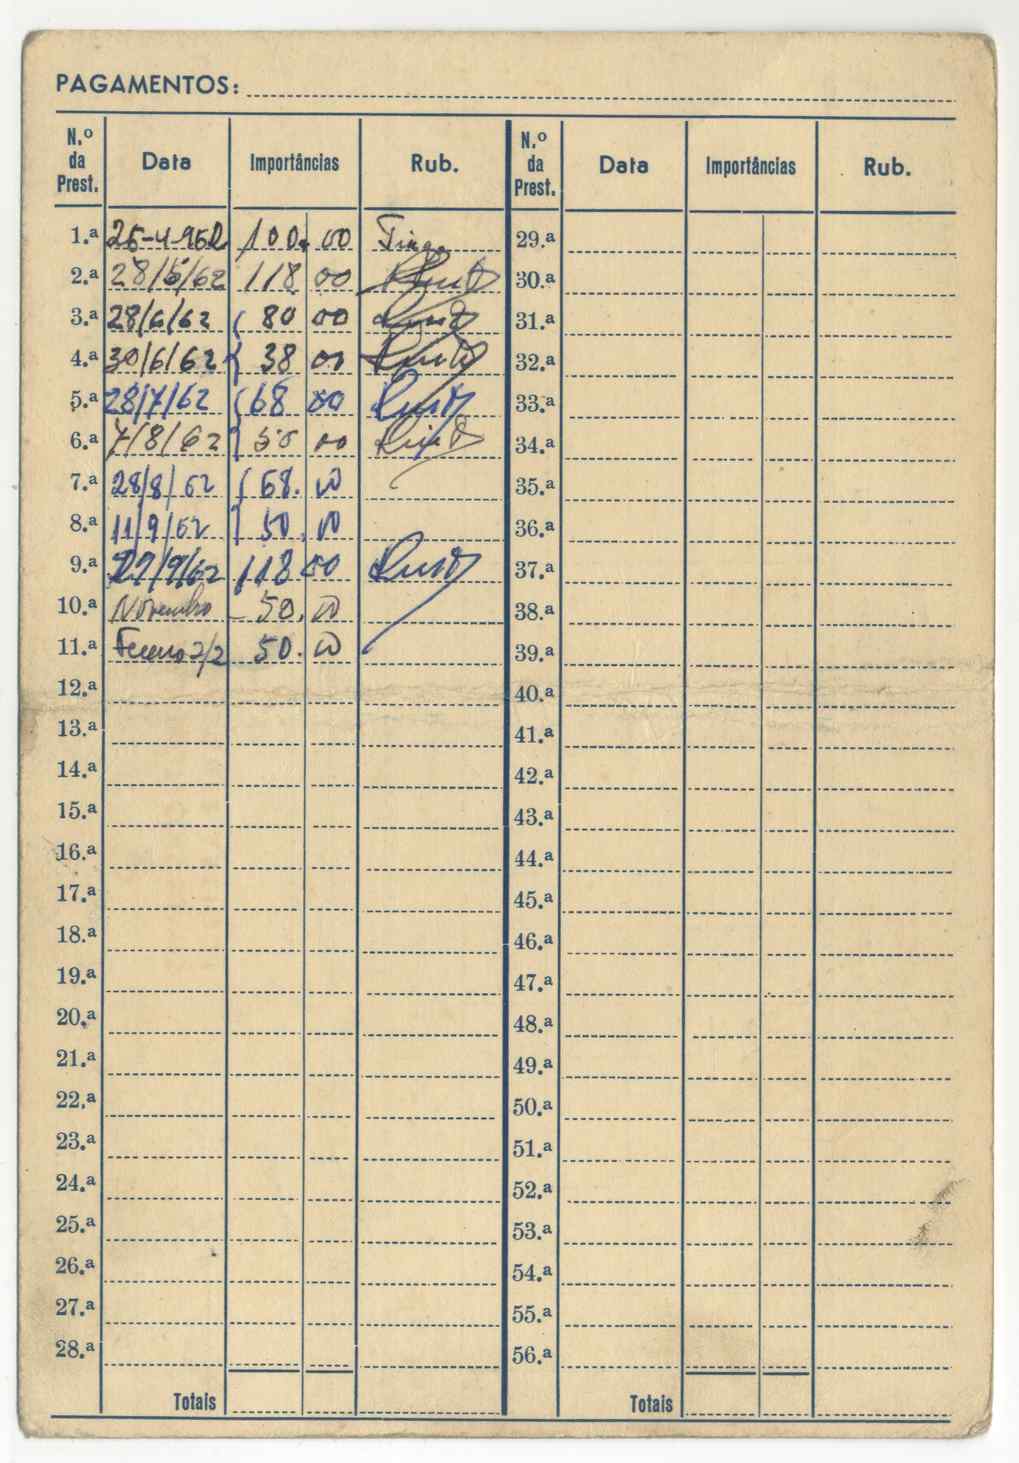 PAGAMENTOS:
N.º da Prest. Data Importâncias Rub. N.º da Prest. Data Importâncias Rub.
1.ª 26-4-962 100. 00 29.ª
2.ª 28/5/62 118 00 30.ª
3.ª 28/6/62 ( 80 00 31.ª
4.ª 30/6/62 ( 38 00 32.ª
5.ª 28/7/62 ( 68 00 33.ª
6.ª 7/8/62 ( 50 00 34.ª
7.ª 28/8/62 ( 68. 00 35.ª
8.ª 11/9/62 ( 50. 00 36.ª
9.ª 27/9/62 118 00 37.ª
10.ª Novembro - 50. 00 38.ª
11.ª 2/2 50. 00 39.ª
12.ª 40.ª
13.ª 41.ª
14.ª 42.ª
15.ª 43.ª
16.ª 44.ª
17.ª 45.ª
18.ª 46.ª
19.ª 47.ª
20.ª 48.ª
21.ª 49.ª
22.ª 50.ª
23.ª 51.ª
24.ª 52.ª
25.ª 53.ª
26.ª 54.ª
27.ª 55.ª
28.ª 56.ª
Totais Totais